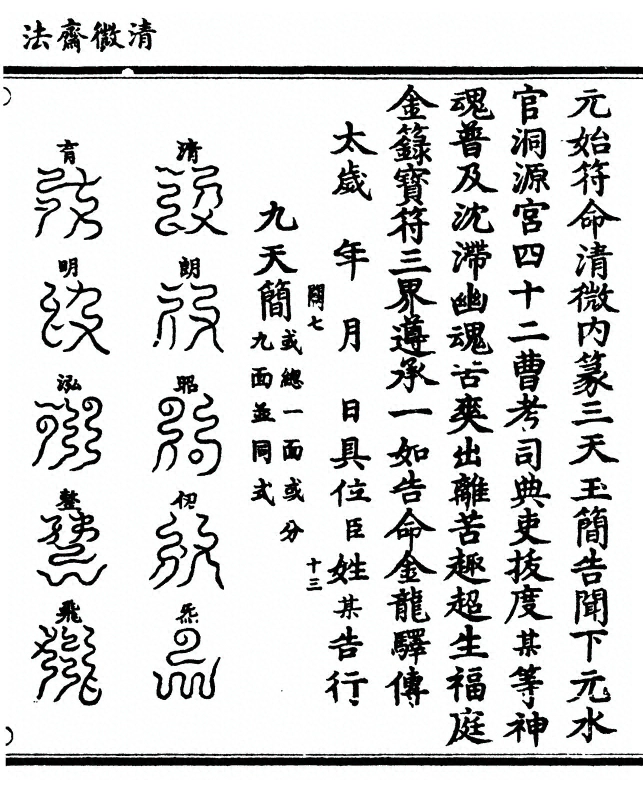 清微齋法
元始符命清微內篆三天玉簡告聞下元水
官洞源宮四十二曹考司典吏拔度某等神
魂普及沈滯幽魂苦爽出離苦趣超生福庭
金籙寶符三界遵承一如告命金龍驛傳
太歲年月日具位臣姓某告行
九天簡或總一面或分九面並同式
関七
十三
清
朗
昭
育
明
泓
飛